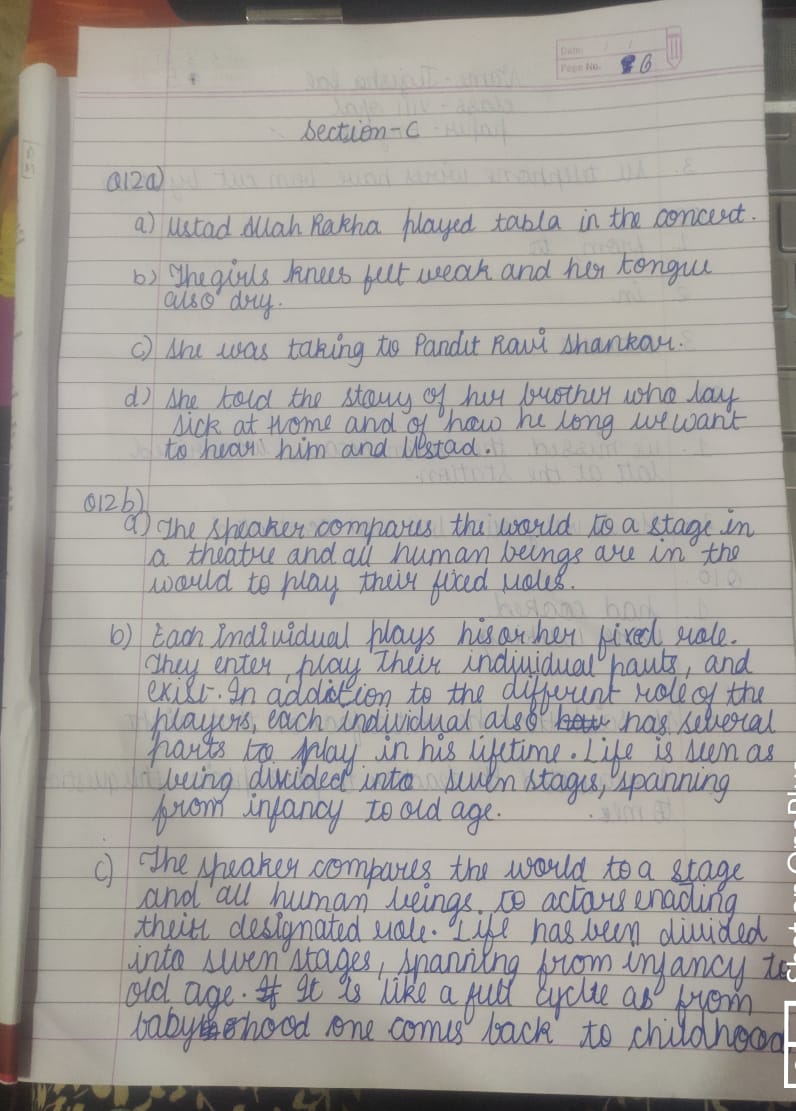 Date: / /
Page No. 6
Section-C
Q12a)
a) Ustad Allah Rakha played tabla in the concert.
b) The girls knees felt weak and her tongue
also dry.
c) She was taking to Pandit Ravi Shankar.
d) She told the story of her brother who lay
sick at Home and of how he long we want
to hear him and Ustad.
Q12b)
a) The speaker compares the world to a stage in
a theatre and all human beings are in the
world to play their fixed roles.
b) Each individual plays his or her fixed role.
They enter, play their individual parts, and
exist. In addition to the different role of the
players, each individual also has several
parts to play in his lifetime. Life is seen as
being divided into seven stages, spanning
from infancy to old age.
c) The speaker compares the world to a stage
and all human beings to actors enading
their designated role. Life has been divided
into seven stages, spanning from infancy to
old age. It is like a full cycle as from
babyhood one comes back to childhood
Shot on OnePlus